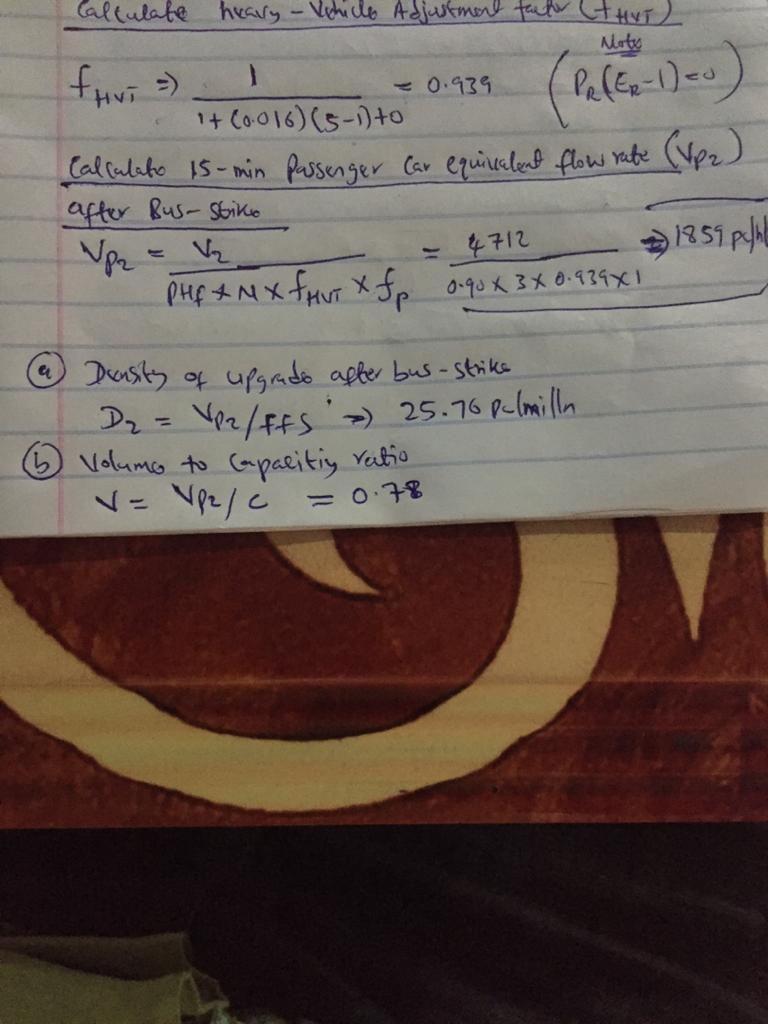 Calculate heavy-Vehicle Adjustment factor (fHVT)
Note
fHVT => 1 / 1+(0.016)(5-1)+0 = 0.939 (PR(ER-1)=0)
Calculate 15-min Passenger Car equivalent flow rate (Vp2)
after Bus-strike
Vp2 = V2 / PHf x N x fHVT x fp = 4712 / 0.90 x 3 x 0.939 x 1 => 1859 pc/h/
(a) Density of upgrade after bus-strike
D2 = Vp2/FFS => 25.76 pc/mi/ln
(b) Volume to Capacitiy ratio
V = Vp2/C = 0.78